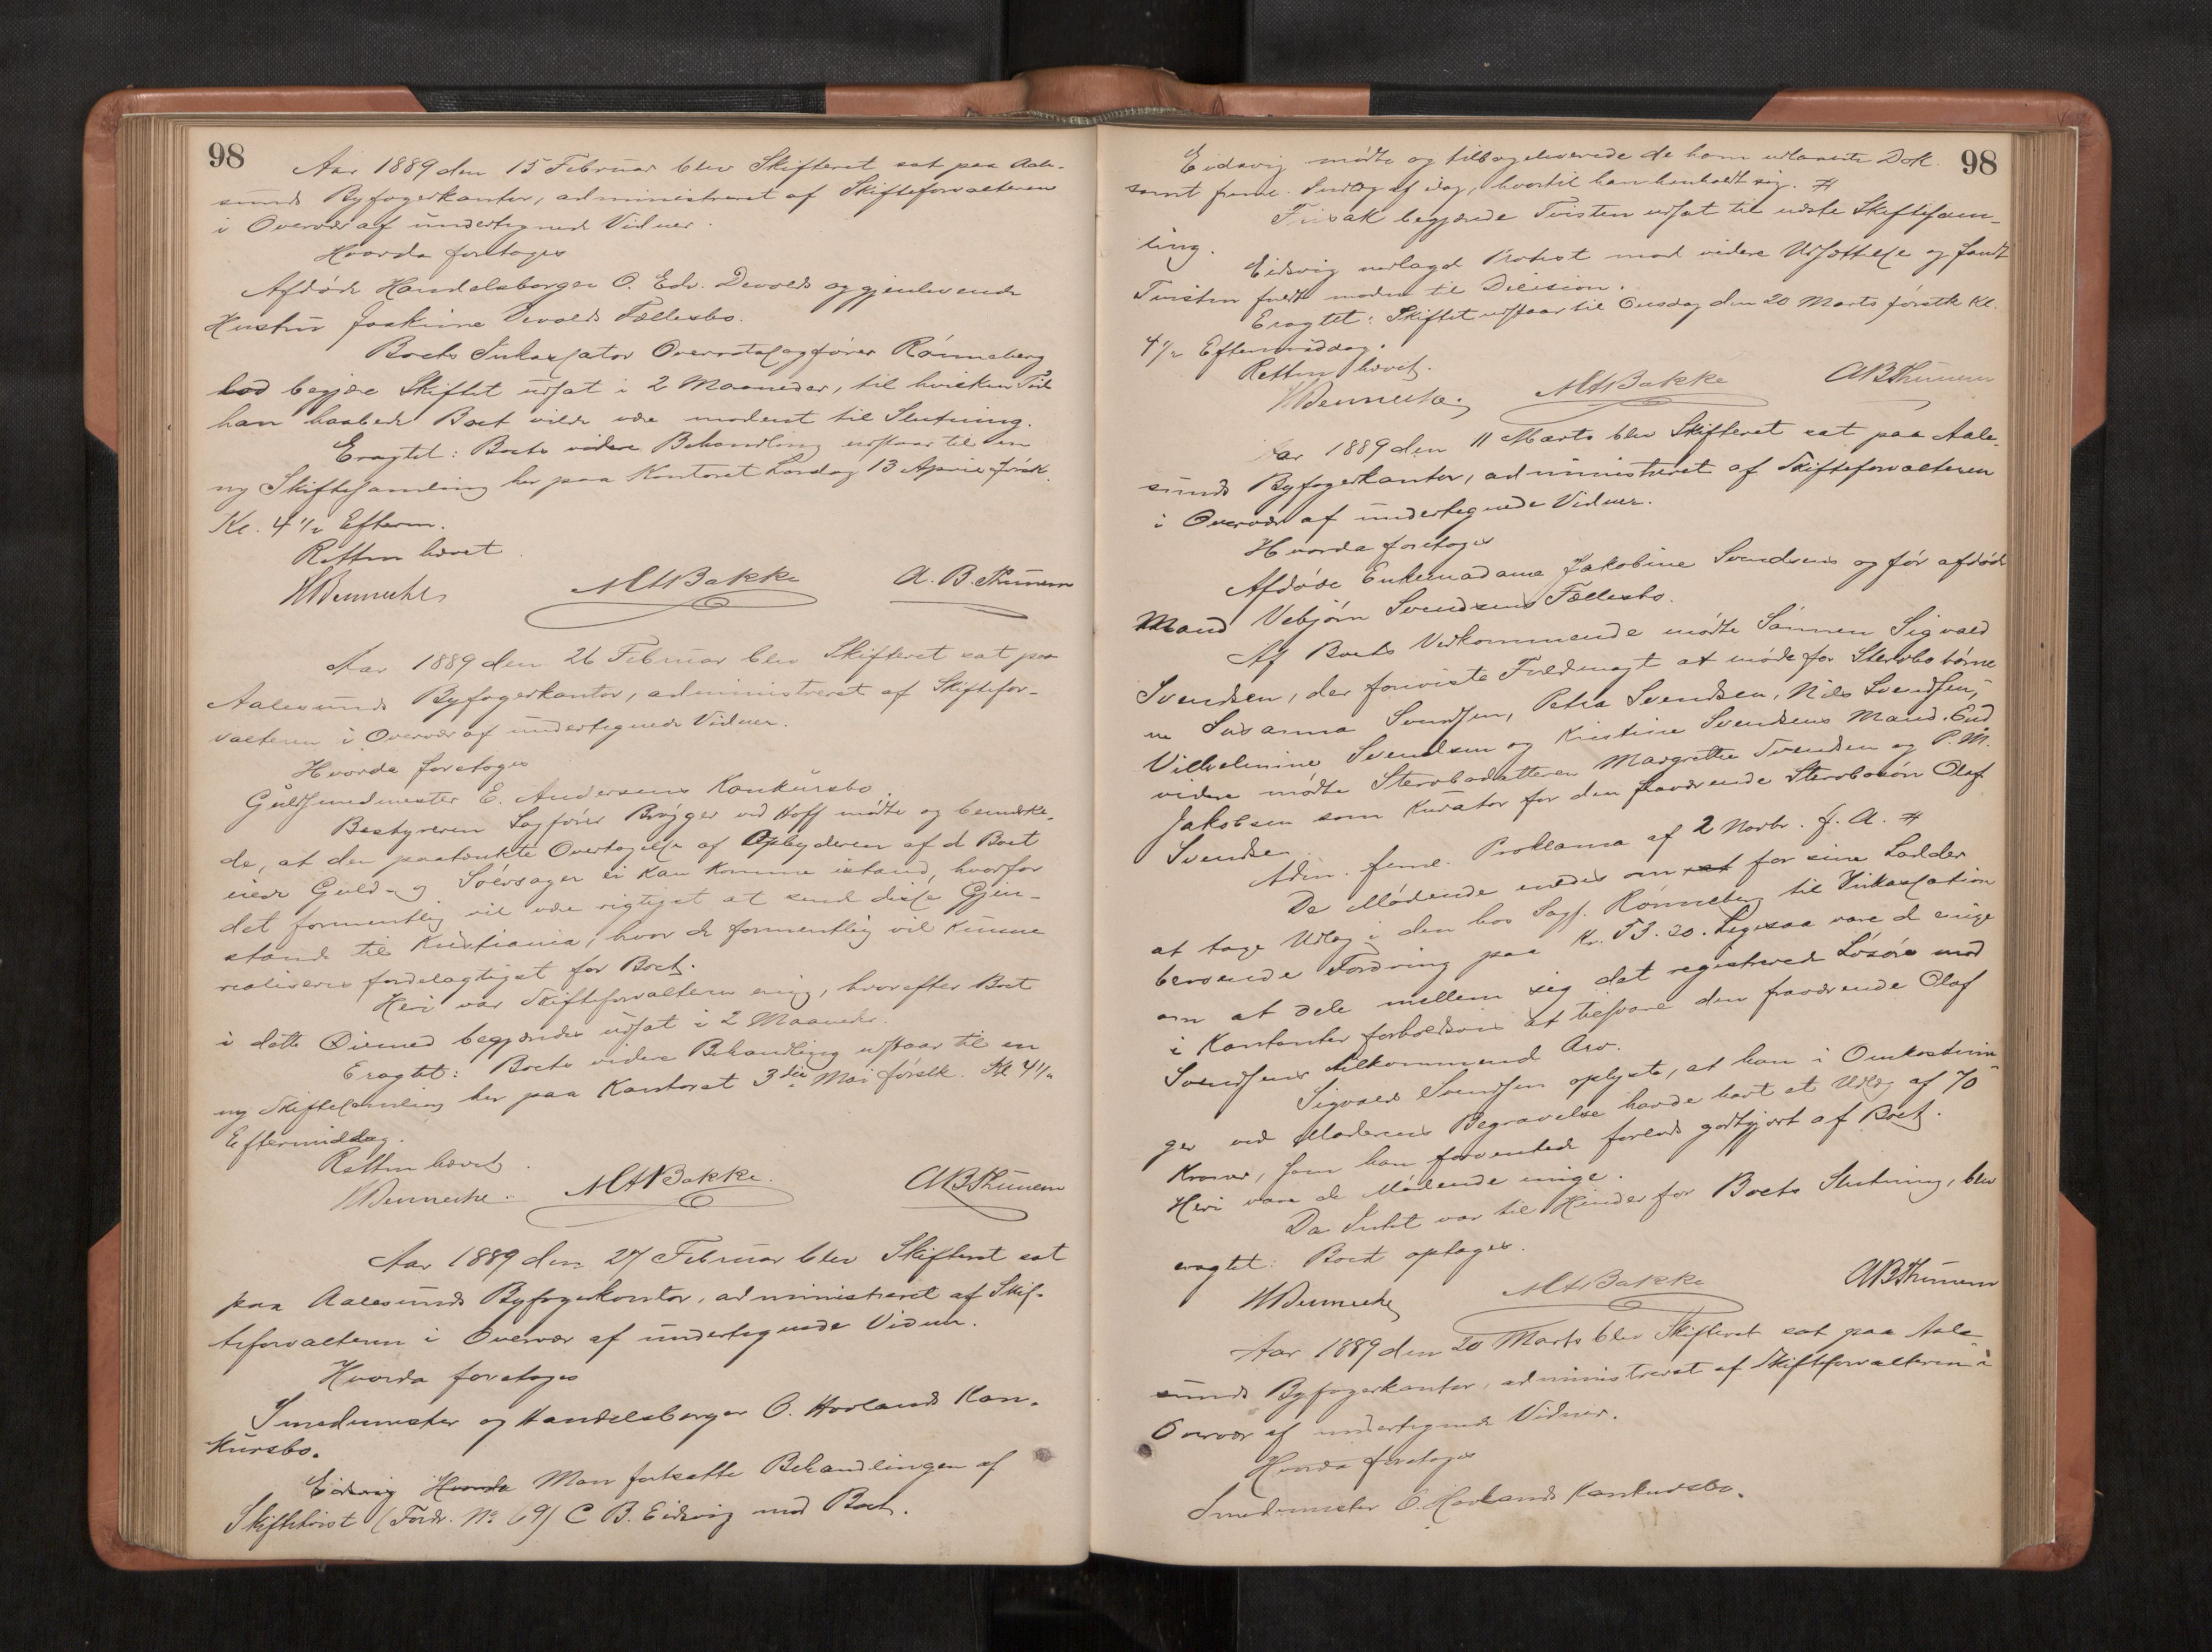 98
Aar 1889 den 15 Februar blev Skifteret sat paa Aale-
sunds Byfogedkontor, administreret af Skifteforvalteren
i Overvær af undertegnede Vidner.
Hvorda foretoges
Afdøde Handelsborger O. Edv. Devolds og gjenlevende
Hustru Joakime Devolds Fællesbo.
Boets Inkassator Overretssagfører Rønneberg
bad begjære Skiftet udsat i 2 Maaneder, til hvilken Tid
han haabede Boet vilde være modent til Slutning.
Eragtet: Boets videre Behandling udstaar til en
ny Skiftesamling her paa Kontoret Lørdag 13 April førstk.
Kl. 4 1/2 Efterm.
Retten hævet.
M A Bakke A. B. Thunem
Aar 1889 den 26 Februar blev Skifteret sat paa
Aalesunds Byfogedkontor, administreret af Skiftefor-
valteren i Overvær af undertegnede Vidner.
Hvorda foretoges
Guldsmedmester E. Andersens Konkursbo.
Bestyreren Sagfører Brøgger ved Hoff mødte og bemærke-
de, at den paatænkte Overtagelse af Opbyderen af d Boet
eiede Guld- og Sølvsager ei kan komme istand, hvorfor
det formentlig vil være rigtigst at sende disse Gjen-
stande til Kristiania, hvor de formentlig vil kunne
realiseres fordelagtigst for Boet.
Heri var Skifteforvalteren enig, hvorefter Boet
i dette Øiemed begjæredes udsat i 2 Maaneder.
Eragtet: Boets videre Behandling udstaar til en
ny Skiftesamling her paa Kontoret 3die Mai førstk. Kl 4 1/2
Eftermiddag.
Retten hævet.
M A Bakke. A B Thunem
Aar 1889 den 27 Februar blev Skifteret sat
paa Aalesunds Byfogedkontor, administreret af Skif-
teforvalteren i Overvær af undertegnede Vidner.
Hvorda foretoges
Smedemester og Handelsborger O. Hovlands Kon-
kursbo.
Eidsvig Hvorda Man fortsatte Behandlingen af
Skiftetvist (Fordr. No 69) C B. Eidsvig mod Boet.
98
Eidsvig mødte og tilbageleverede de ham udlaante Dok.
samt freml. Indlæg af idag, hvortil han henholdt sig. #
Frisak begjærede Tvisten udsat til næste Skiftesam-
ling.
Eidsvig nedlagde Protest mod videre Udsættelse og fandt
Tvisten fuldt moden til Decision.
Eragtet: Skiftet udstaar til Onsdag den 20 Marts førstk. Kl.
4 1/2 Eftermiddag.
Retten hævet.
M A Bakke A B Thunem
Aar 1889 den 11 Marts blev Skifteret sat paa Aale-
sunds Byfogedkontor, administreret af Skifteforvalteren
i Overvær af undertegnede Vidner.
Hvorda foretoges
Afdøde Enkemadame Jakobine Svendsens og før afdøde
Mand Vebjørn Svendsens Fællesbo.
Af Boets Vedkommende mødte Sønnen Sigvald
Svendsen, der foreviste Fuldmagt at møde for Stervbobørne-
ne Susanna Svendsen, Petra Svendsen, Nils Svendsen,
Vilhelmine Svendsen og Kristine Svendsens Mand. End
videre mødte Stervbodatteren Margrethe Svendsen og P. M.
Jakobsen som Kurator for den fraværende Stervbosøn Olaf
Svendsen.
Adm. freml. Proklama af 2 Novbr. f. A. #
De Mødende enedes om for sine Lodder
at tage Udlæg i den hos Sagf. Rønneberg til Inkassation
beroende Fordring paa Kr. 53.20. Ligesaa vare de enige
om at dele mellem sig det registrerede Løsøre mod
i Kontanter forholdsvis at tilsvare den fraværende Olaf
Svendsens tilkommende Arv.
Sigvald Svendsen oplyste, at han i Omkostnin-
ger ved Moderens Begravelse havde havt et Udlæg af 70
Kroner, som han forventede forlods godtgjort af Boet.
Heri vare de Mødende enige.
Da Intet var til Hinder for Boets Slutning, blev
eragtet: Boet optages.
M A Bakke A B Thunem
Aar 1889 den 20 Marts blev Skifteret sat paa Aale-
sunds Byfogedkontor, administreret af Skifteforvalteren i
Overvær af undertegnede Vidner.
Hvorda foretoges
Smedemester O. Hovlands Konkursbo.